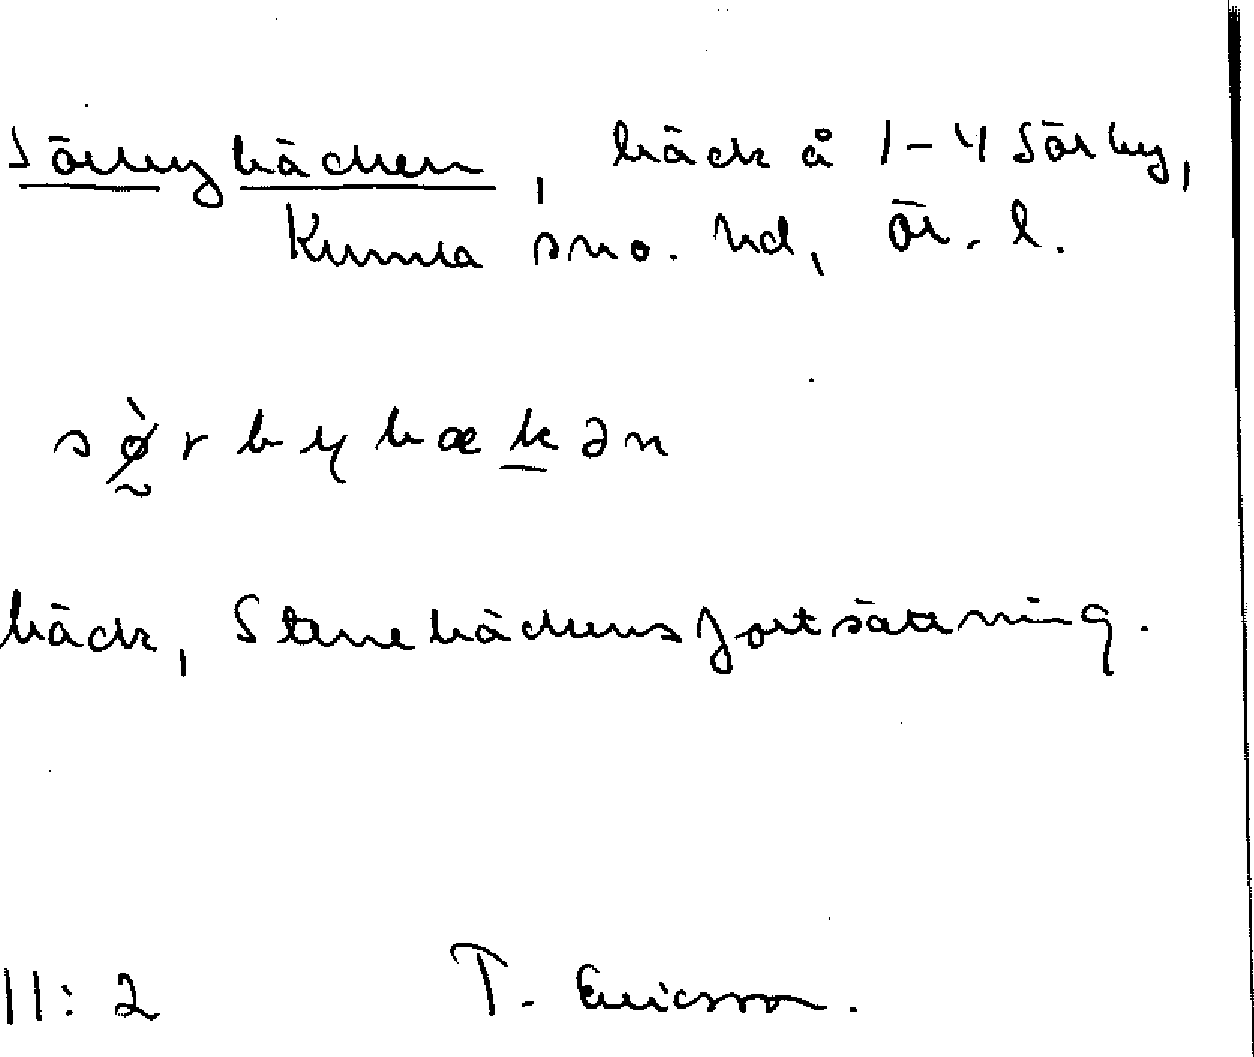 Sörbybäcken, bäck å 1-4 Sörby,
Kumla sn o. hd, Ör. l.
sø̀rbybækən
bäck, Stenebäckens fortsättning.
11:2 T. Ericson.